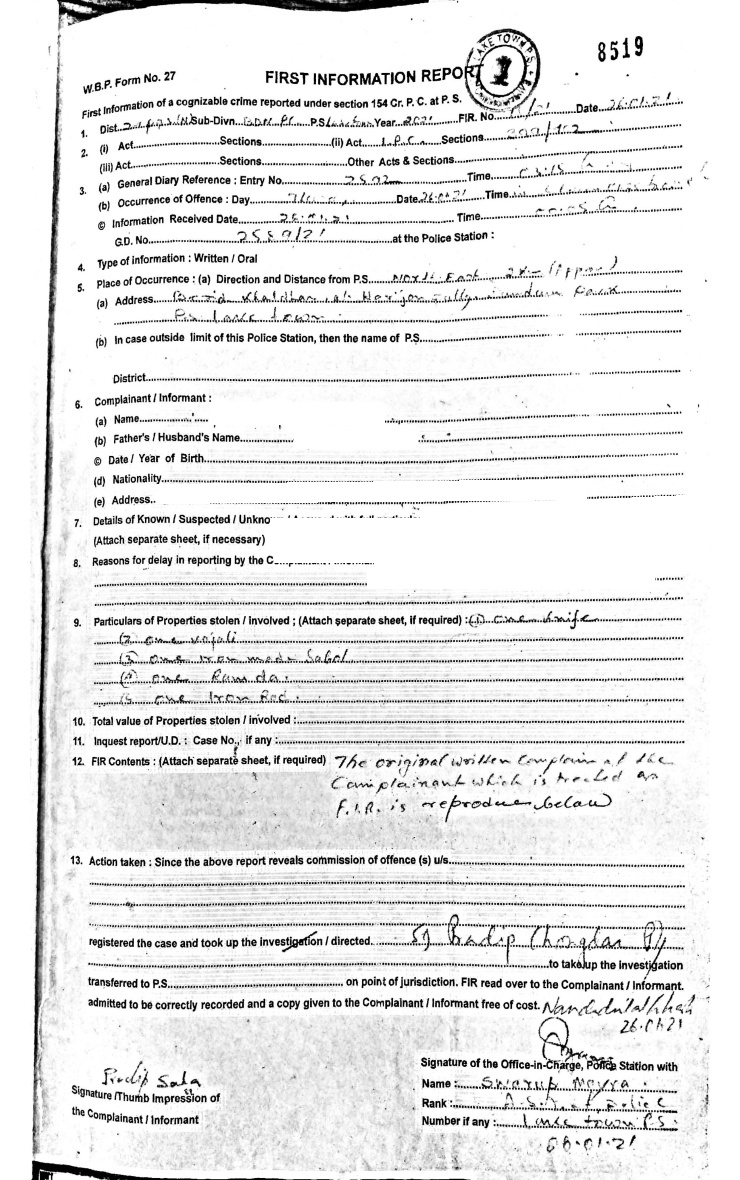 8519
LAKE TOWN P.S.
W.B.P. Form No. 27
FIRST INFORMATION REPORT
First Information of a cognizable crime reported under section 154 Cr. P. C. at P. S.
1. Dist. Sub-Divn. P.S. Year 2021 FIR. No. /21 Date 26.01.21
2. (i) Act Sections (ii) Act I.P.C. Sections
(iii) Act Sections Other Acts & Sections
3. (a) General Diary Reference : Entry No. 2592 Time
(b) Occurrence of Offence : Day Date 26.01.21 Time
© Information Received Date 26.01.21 Time
G.D. No. 2589/21 at the Police Station :
4. Type of information : Written / Oral
5. Place of Occurrence : (a) Direction and Distance from P.S. North East
(a) Address Park
PS Lake town
(b) In case outside limit of this Police Station, then the name of P.S.
District
6. Complainant / Informant :
(a) Name
(b) Father's / Husband's Name
© Date / Year of Birth
(d) Nationality
(e) Address
7. Details of Known / Suspected / Unkno
(Attach separate sheet, if necessary)
8. Reasons for delay in reporting by the C
9. Particulars of Properties stolen / involved ; (Attach separate sheet, if required) : (1) one knife
(2 one vojali
(3) one iron made Sabol
(4) one Ram da.
(5 one Iron Rod.
10. Total value of Properties stolen / involved :
11. Inquest report/U.D. : Case No., if any :
12. FIR Contents : (Attach separate sheet, if required) The original written complain of the
Complainant which is treated as
F.I.R. is reproduce below
13. Action taken : Since the above report reveals commission of offence (s) u/s
registered the case and took up the investigation / directed. SI Pradip Chongdar
to take up the investigation
transferred to P.S. on point of jurisdiction. FIR read over to the Complainant / Informant.
admitted to be correctly recorded and a copy given to the Complainant / Informant free of cost.
26.01.21
Signature of the Office-in-Charge, Police Station with
Pradip Saha
Name : Swarup Moyra
Signature /Thumb Impression of
Rank : A.S.I. of Police
the Complainant / Informant
Number if any : Lake town P.S.